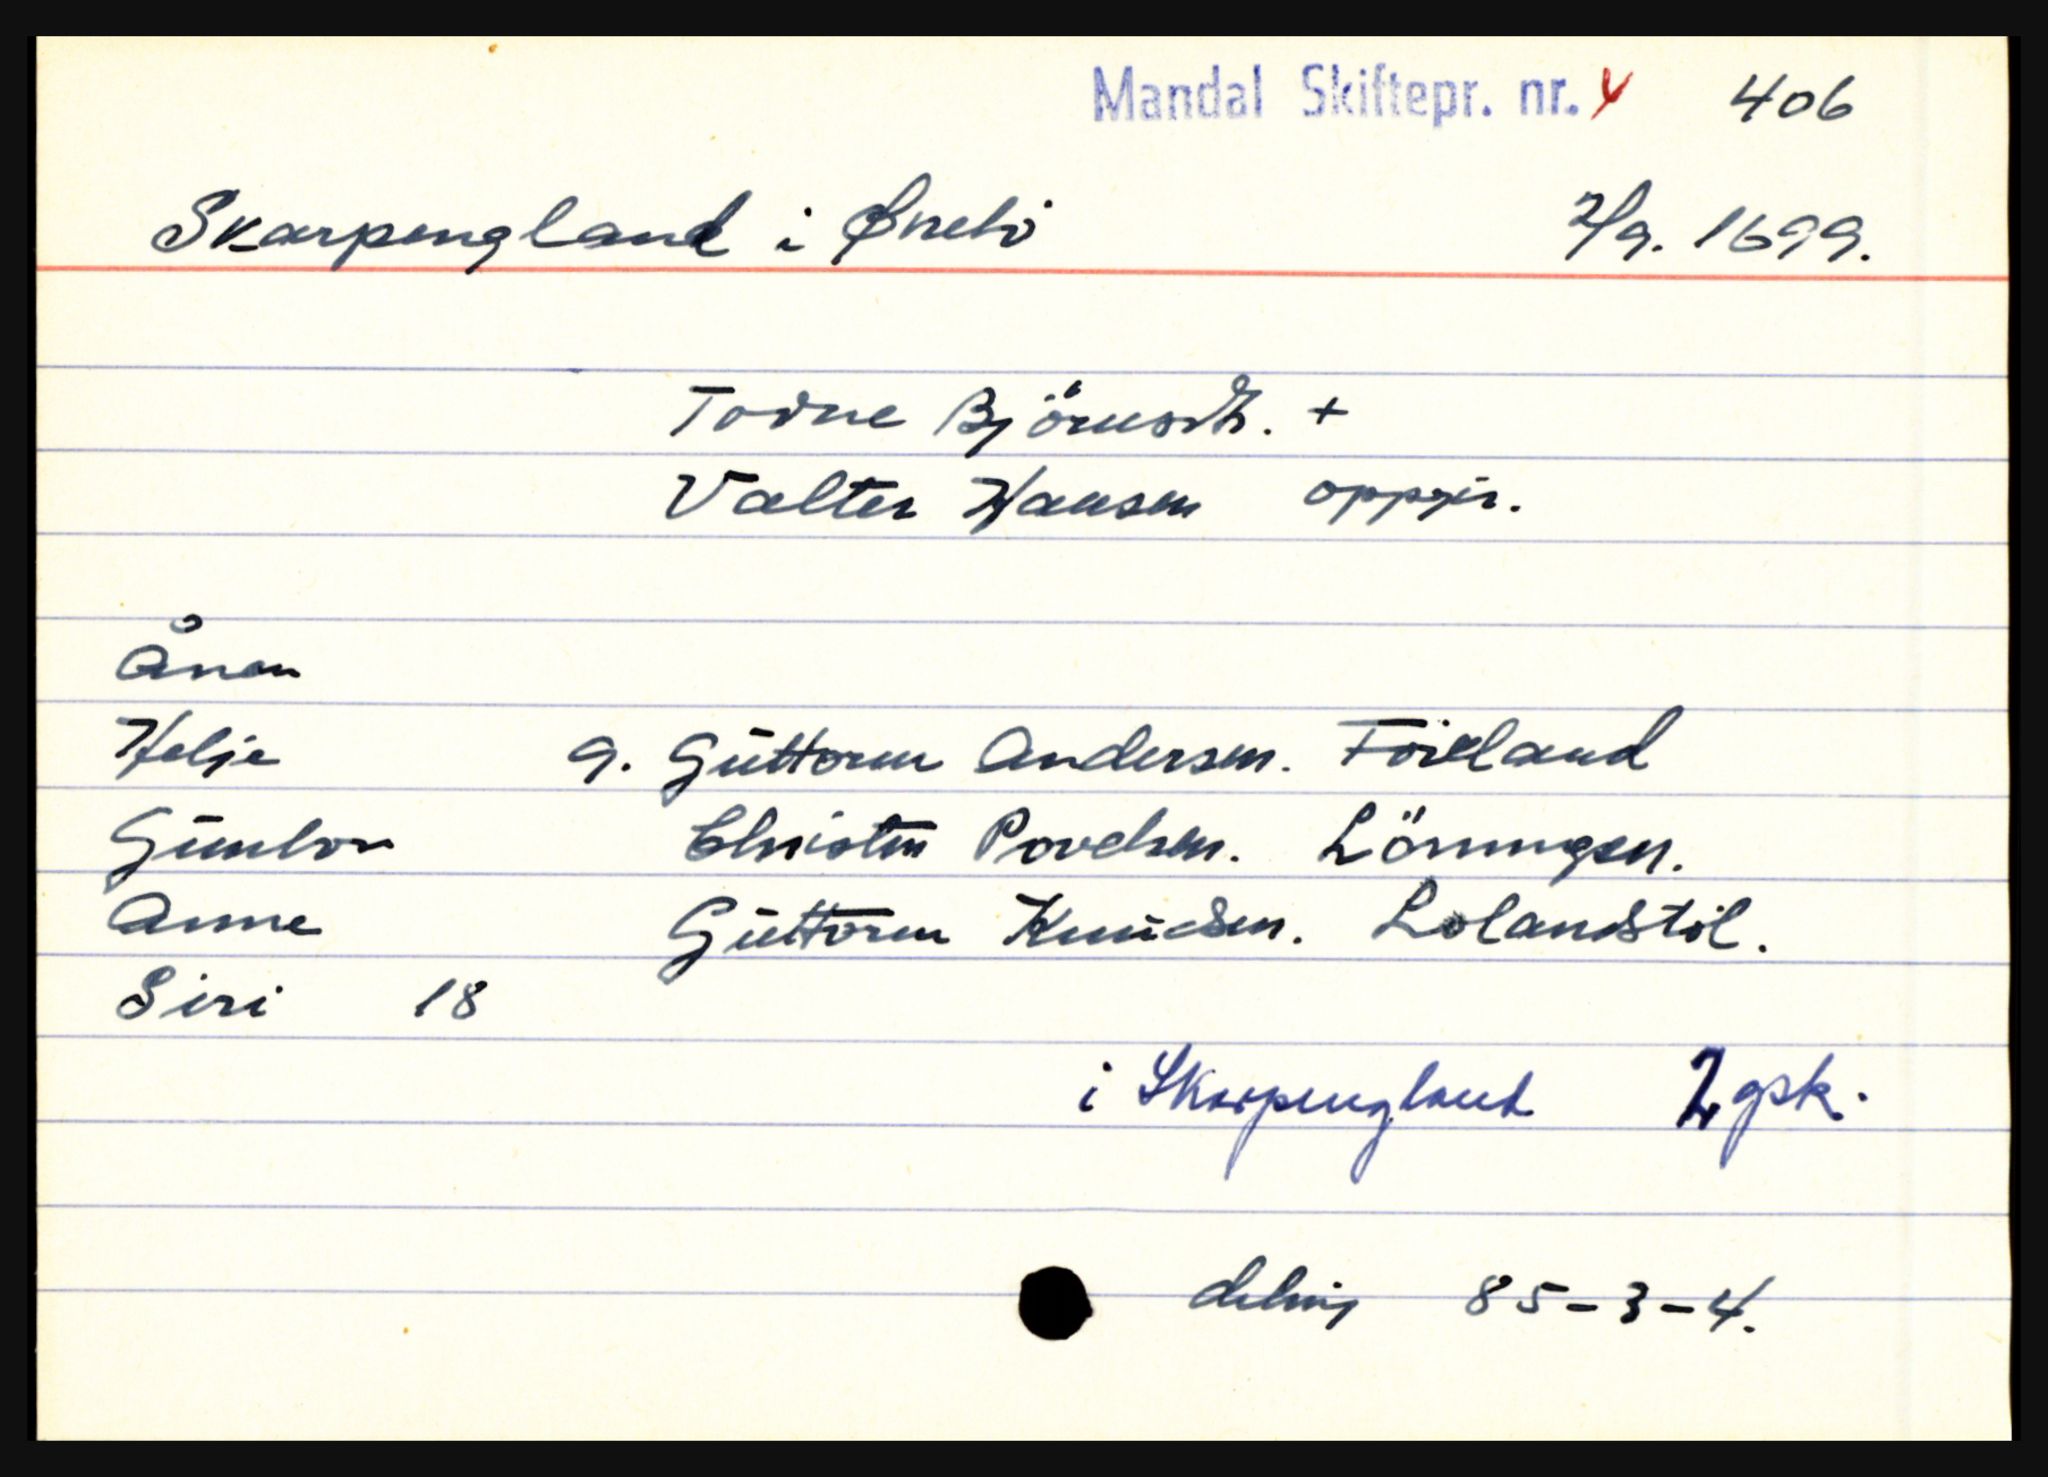 Mandal Skiftepr. nr. 4 406
Skarpengland i Øvrebö 2/9. 1699.
Torne Björnsdtr. +
Valter Hansen oppgir.
Ånen
Helje g. Guttorm Andersen. Föreland
Gunbor Christen Povelsen. Löningen.
Anne Guttorm Knudsen. Lolandstöl.
Siri 18
i Skarpengland 2 gsk.
deling 85-3-4.